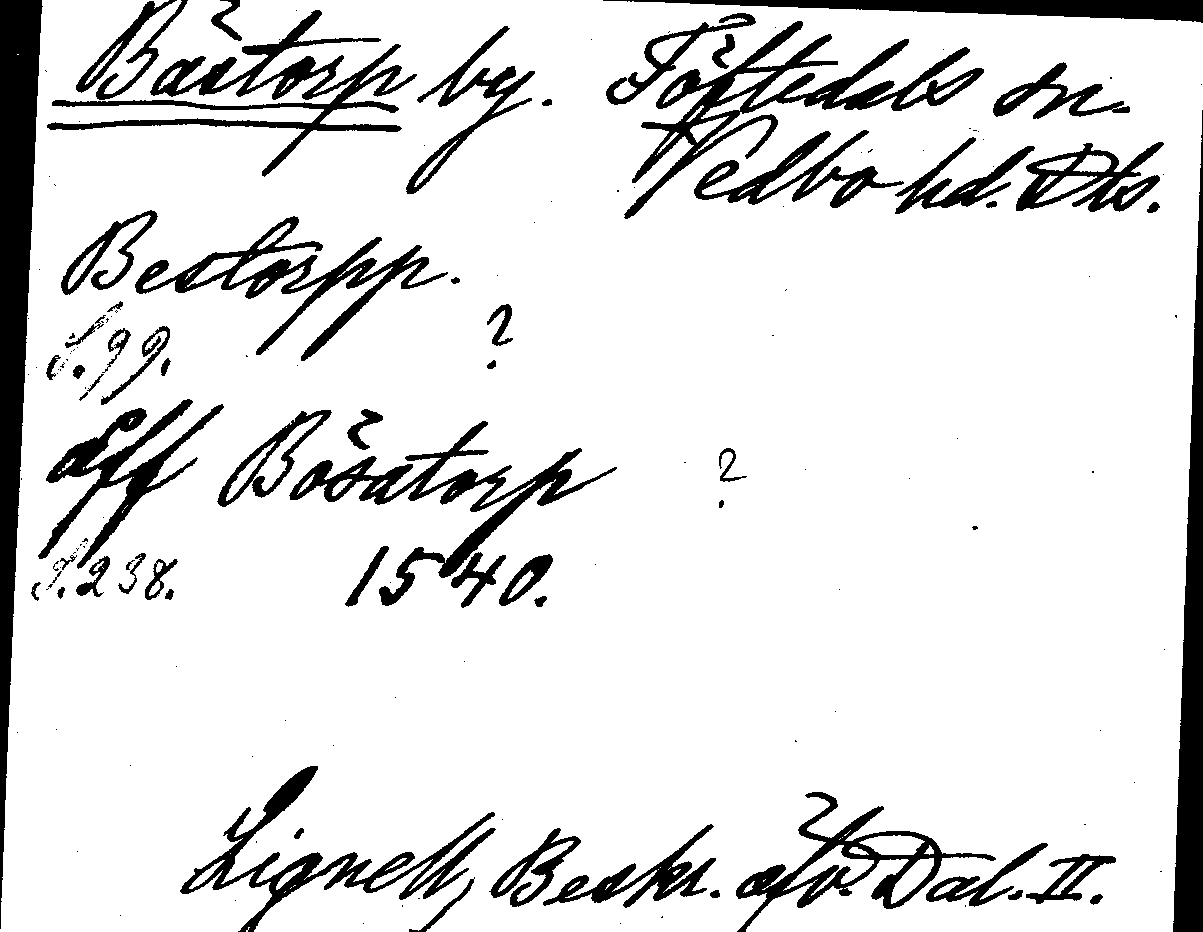 Bästorp by. Töftedals sn.
Vedbo hd. Dls.
Bestorpp.
S. 99. ?
Aff Bösatorp ?
S. 238. 1540.
Lignell, Beskr. öfv. Dal. II.